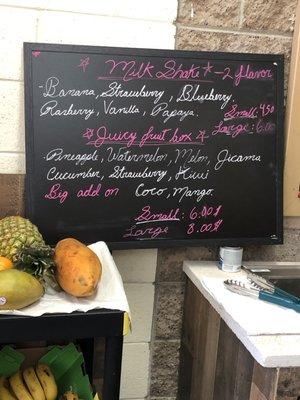 ☆ Milk Shake ☆ - 2 flavor
- Banana, Strawberry, Blueberry.
Rasberry, Vanilla, Papaya.
Small: 4.50
Large: 6.00
☆ Juicy fruit box ☆
- Pineapple, Watermelon, Melon, Jicama
Cucumber, Strawberry, Kiwi
Big add on Coco, Mango.
Small: 6.00$
Large 8.00$